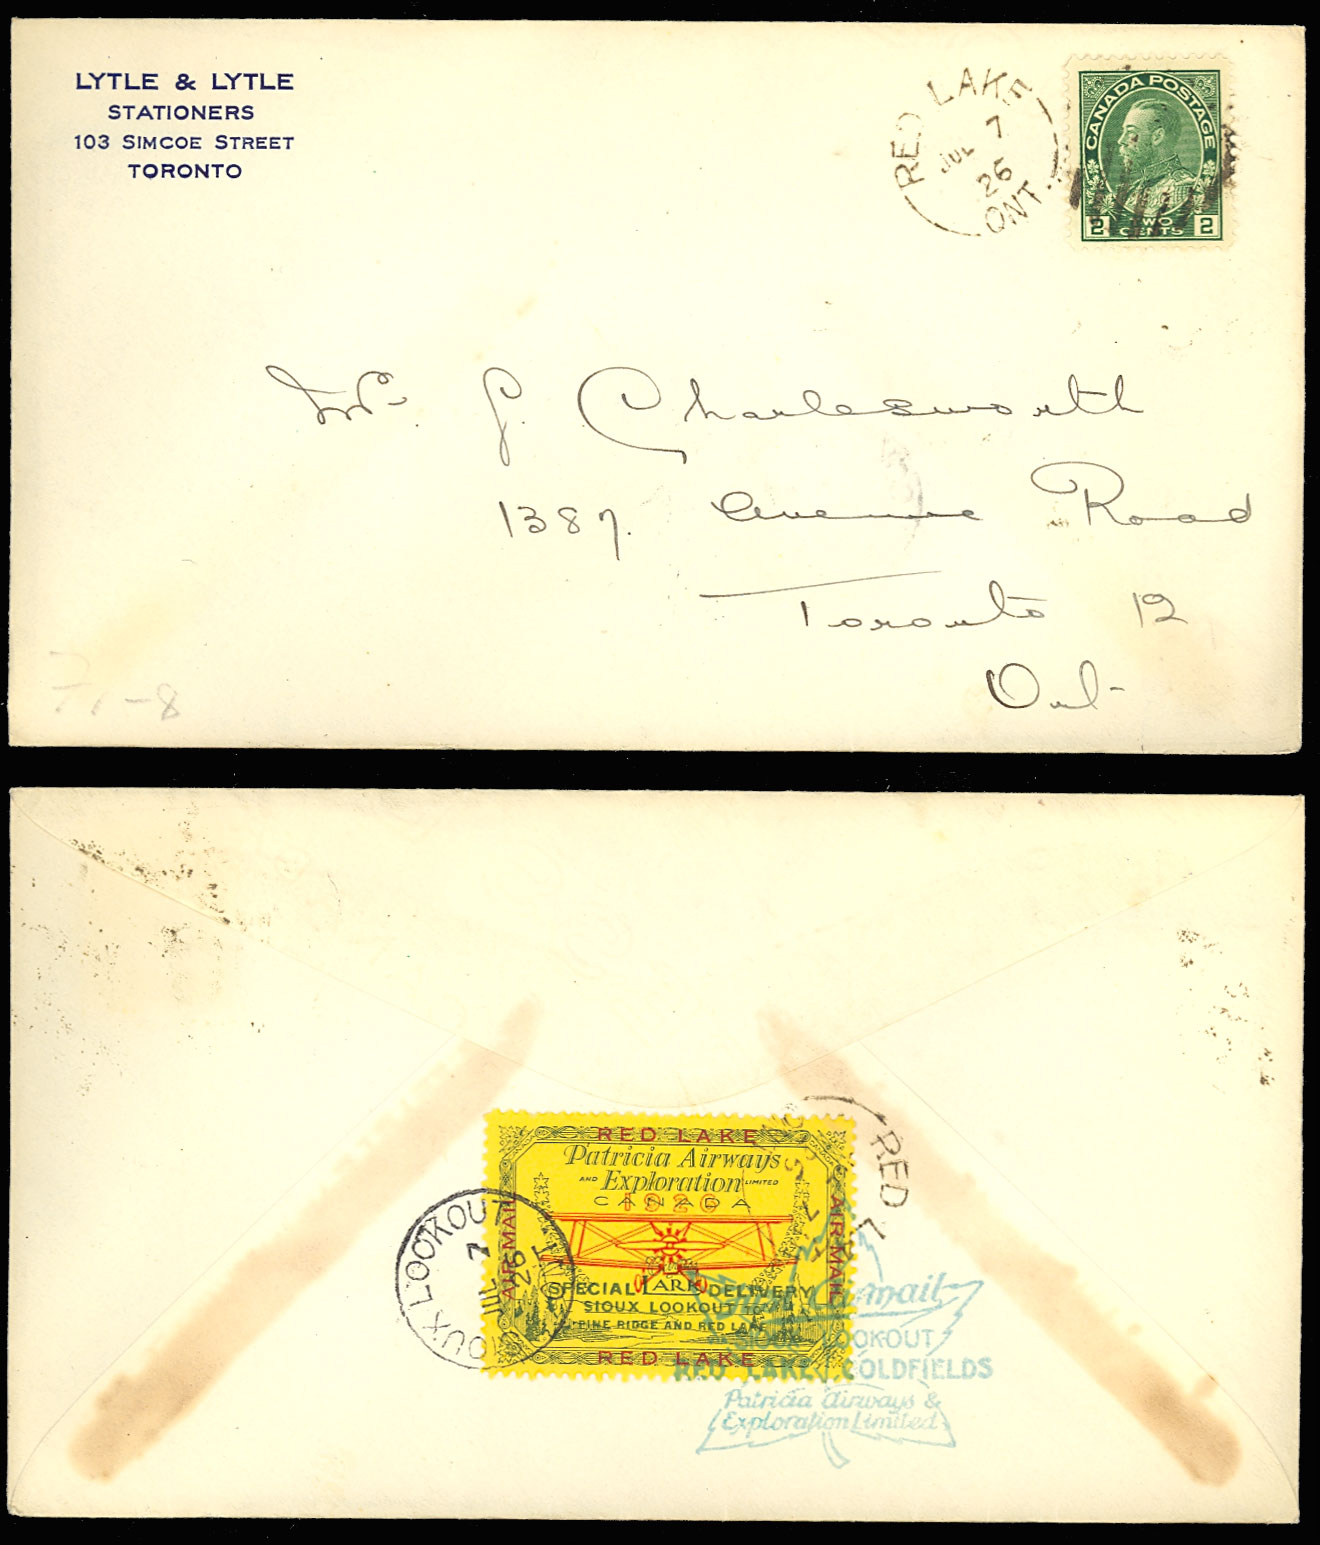 LYTLE & LYTLE
STATIONERS
103 SIMCOE STREET
TORONTO
RED LAKE
JUL 7
26
ONT.
CANADA POSTAGE
2 TWO CENTS 2
Mr. J. Charlesworth
1387. Avenue Road
Toronto 12
Ont-
RED LAKE
Patricia Airways
AND Exploration LIMITED
CANADA
1926
AIR MAIL
AIR MAIL
SPECIAL LARK DELIVERY
SIOUX LOOKOUT TO
PINE RIDGE AND RED LAKE
RED LAKE
SIOUX LOOKOUT
7
JUL
26
ONT
RED LAKE
SIOUX LOOKOUT
RED LAKE GOLDFIELDS
Patricia Airways &
Exploration Limited